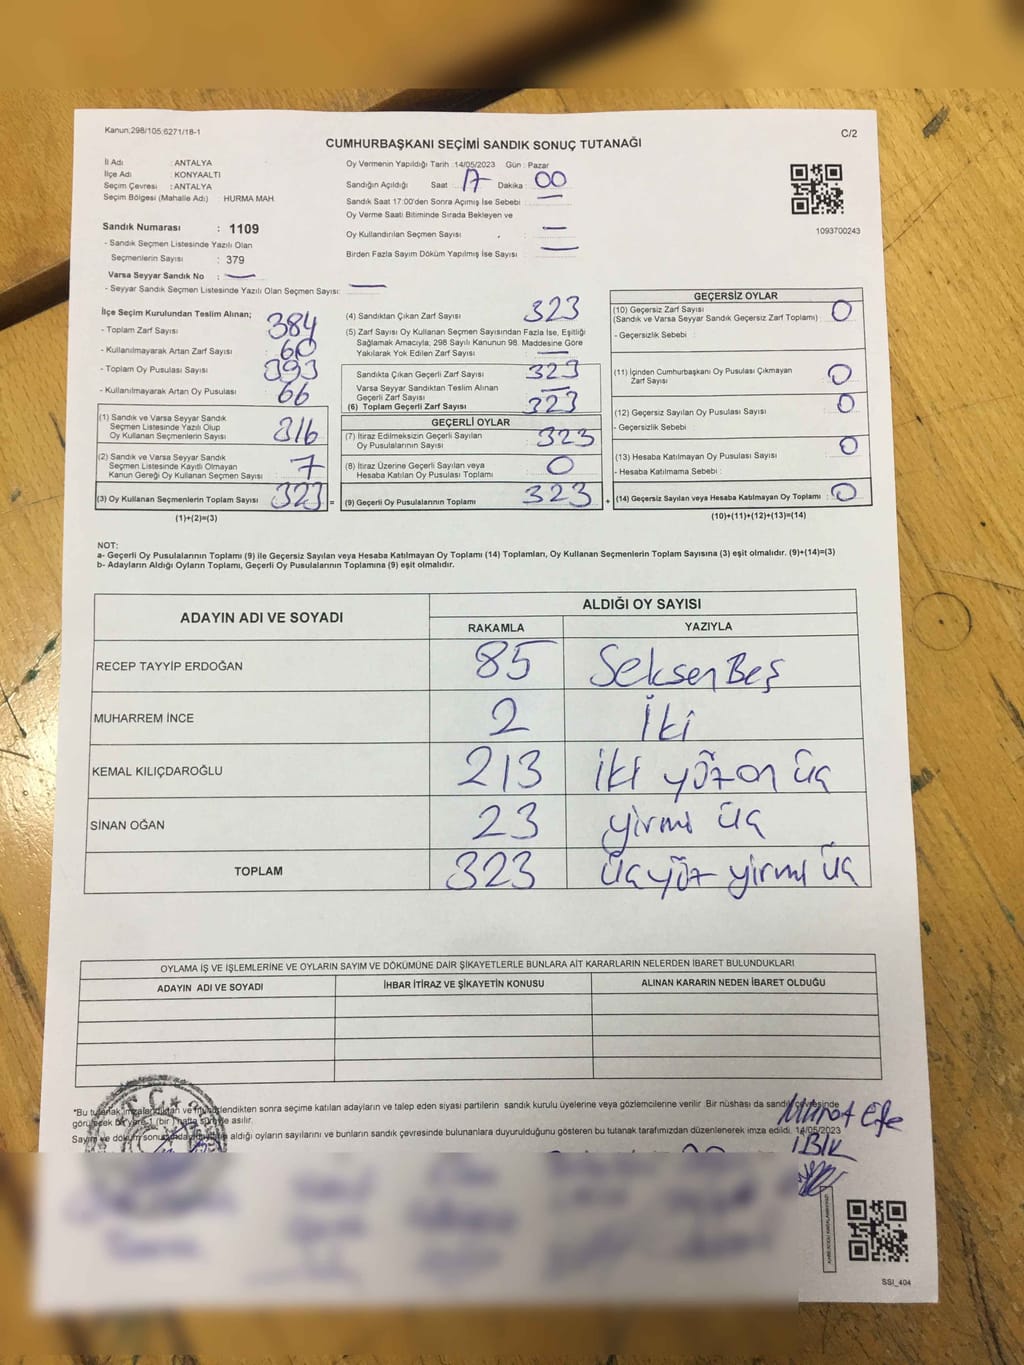 Kanun,298/105;6271/18-1
C/2
CUMHURBAŞKANI SEÇİMİ SANDIK SONUÇ TUTANAĞI
İl Adı : ANTALYA
İlçe Adı : KONYAALTI
Seçim Çevresi : ANTALYA
Seçim Bölgesi (Mahalle Adı) HURMA MAH.
Oy Vermenin Yapıldığı Tarih :14/05/2023 Gün : Pazar
Sandığın Açıldığı Saat : 17 Dakika : 00
Sandık Saat 17:00'den Sonra Açımış İse Sebebi :
Oy Verme Saati Bitiminde Sırada Bekleyen ve
Oy Kullandırılan Seçmen Sayısı :
Birden Fazla Sayım Döküm Yapılmış İse Sayısı :
1093700243
Sandık Numarası : 1109
- Sandık Seçmen Listesinde Yazılı Olan
Seçmenlerin Sayısı : 379
Varsa Seyyar Sandık No :
- Seyyar Sandık Seçmen Listesinde Yazılı Olan Seçmen Sayısı:
İlçe Seçim Kurulundan Teslim Alınan;
- Toplam Zarf Sayısı 384
- Kullanılmayarak Artan Zarf Sayısı 60
- Toplam Oy Pusulası Sayısı 393
- Kullanılmayarak Artan Oy Pusulası 66
(1) Sandık ve Varsa Seyyar Sandık
Seçmen Listesinde Yazılı Olup
Oy Kullanan Seçmenlerin Sayısı 316
(2) Sandık ve Varsa Seyyar Sandık
Seçmen Listesinde Kayıtlı Olmayan
Kanun Gereği Oy Kullanan Seçmen Sayısı 7
(3) Oy Kullanan Seçmenlerin Toplam Sayısı 323 =
(1)+(2)=(3)
(4) Sandıktan Çıkan Zarf Sayısı 323
(5) Zarf Sayısı Oy Kullanan Seçmen Sayısından Fazla İse, Eşitliği
Sağlamak Amacıyla, 298 Sayılı Kanunun 98. Maddesine Göre
Yakılarak Yok Edilen Zarf Sayısı :
Sandıkta Çıkan Geçerli Zarf Sayısı 323
Varsa Seyyar Sandıktan Teslim Alınan
Geçerli Zarf Sayısı
(6) Toplam Geçerli Zarf Sayısı 323
GEÇERLİ OYLAR
(7) İtiraz Edilmeksizin Geçerli Sayılan
Oy Pusulalarının Sayısı 323
(8) İtiraz Üzerine Geçerli Sayılan veya
Hesaba Katılan Oy Pusulası Toplamı 0
(9) Geçerli Oy Pusulalarının Toplamı 323 +
GEÇERSİZ OYLAR
(10) Geçersiz Zarf Sayısı
(Sandık ve Varsa Seyyar Sandık Geçersiz Zarf Toplamı) : 0
- Geçersizlik Sebebi :
(11) İçinden Cumhurbaşkanı Oy Pusulası Çıkmayan
Zarf Sayısı 0
(12) Geçersiz Sayılan Oy Pusulası Sayısı : 0
- Geçersizlik Sebebi :
(13) Hesaba Katılmayan Oy Pusulası Sayısı : 0
- Hesaba Katılmama Sebebi :
(14) Geçersiz Sayılan veya Hesaba Katılmayan Oy Toplamı : 0
(10)+(11)+(12)+(13)=(14)
NOT:
a- Geçerli Oy Pusulalarının Toplamı (9) ile Geçersiz Sayılan veya Hesaba Katılmayan Oy Toplamı (14) Toplamları, Oy Kullanan Seçmenlerin Toplam Sayısına (3) eşit olmalıdır. (9)+(14)=(3)
b- Adayların Aldığı Oyların Toplamı, Geçerli Oy Pusulalarının Toplamına (9) eşit olmalıdır.
ADAYIN ADI VE SOYADI ALDIĞI OY SAYISI
RAKAMLA YAZIYLA
RECEP TAYYİP ERDOĞAN 85 Seksen Beş
MUHARREM İNCE 2 İki
KEMAL KILIÇDAROĞLU 213 iki yüz on üç
SİNAN OĞAN 23 yirmi üç
TOPLAM 323 üçyüz yirmi üç
OYLAMA İŞ VE İŞLEMLERİNE VE OYLARIN SAYIM VE DÖKÜMÜNE DAİR ŞİKAYETLERLE BUNLARA AİT KARARLARIN NELERDEN İBARET BULUNDUKLARI
ADAYIN ADI VE SOYADI İHBAR İTİRAZ VE ŞİKAYETİN KONUSU ALINAN KARARIN NEDEN İBARET OLDUĞU
*Bu tutanak imzalandıktan ve mühürlendikten sonra seçime katılan adayların ve talep eden siyasi partilerin sandık kurulu üyelerine veya gözlemcilerine verilir .Bir nüshası da sandık çevresinde
görülecek bir yere 1 (bir) hafta süreyle asılır.
Sayım ve döküm sonu aldığı oyların sayılarını ve bunların sandık çevresinde bulunanlara duyurulduğunu gösteren bu tutanak tarafımızdan düzenlenerek imza edildi. 14/05/2023
Murat Efe
T.C.
SSI_404